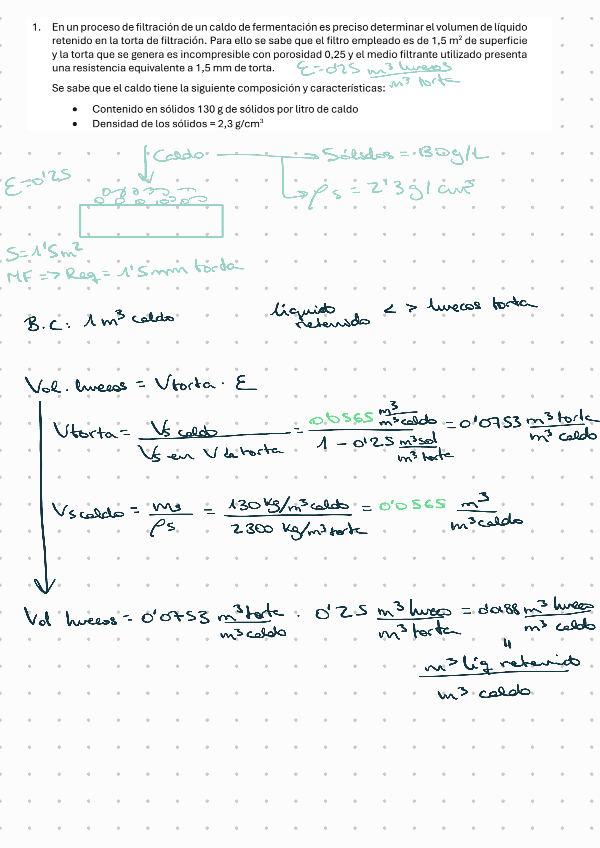 1. En un proceso de filtración de un caldo de fermentación es preciso determinar el volumen de líquido
retenido en la torta de filtración. Para ello se sabe que el filtro empleado es de 1,5 m² de superficie
y la torta que se genera es incompresible con porosidad 0,25 y el medio filtrante utilizado presenta
una resistencia equivalente a 1,5 mm de torta.
ε=0'25 m³ huecos / m³ torta
Se sabe que el caldo tiene la siguiente composición y características:
• Contenido en sólidos 130 g de sólidos por litro de caldo
• Densidad de los sólidos = 2,3 g/cm³
Caldo → Sólidos = 130 g/L
ε=0'25
ρs = 2'3 g/cm³
S=1'5m²
MF => Req = 1'5mm torta
B.C: 1 m³ caldo
líquido retenido < > huecos torta
Vol. huecos = Vtorta · ε
Vtorta = Vs caldo / Vs en V de torta = 0.0565 m³/m³ caldo / 1 - 0'25 m³sol/m³ torta = 0'0753 m³ torta / m³ caldo
Vs caldo = ms / ρs = 130 kg/m³ caldo / 2300 kg/m³ torta = 0'0565 m³ / m³ caldo
Vol huecos = 0'0753 m³ torta / m³ caldo · 0'25 m³ hueco / m³ torta = 0'0188 m³ hueco / m³ caldo
"
m³ liq retenido / m³ caldo